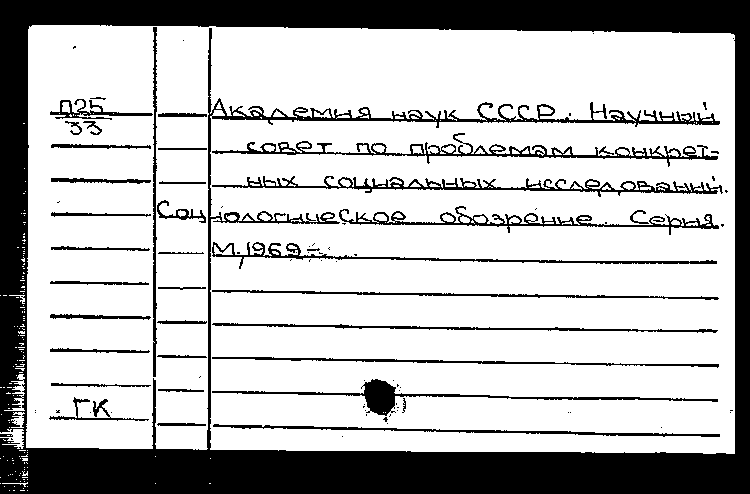 П25
33
Академия наук СССР. Научный
совет по проблемам конкрет-
ных социальных исследований.
Социологическое обозрение. Серия.
М., 1969-
ГК